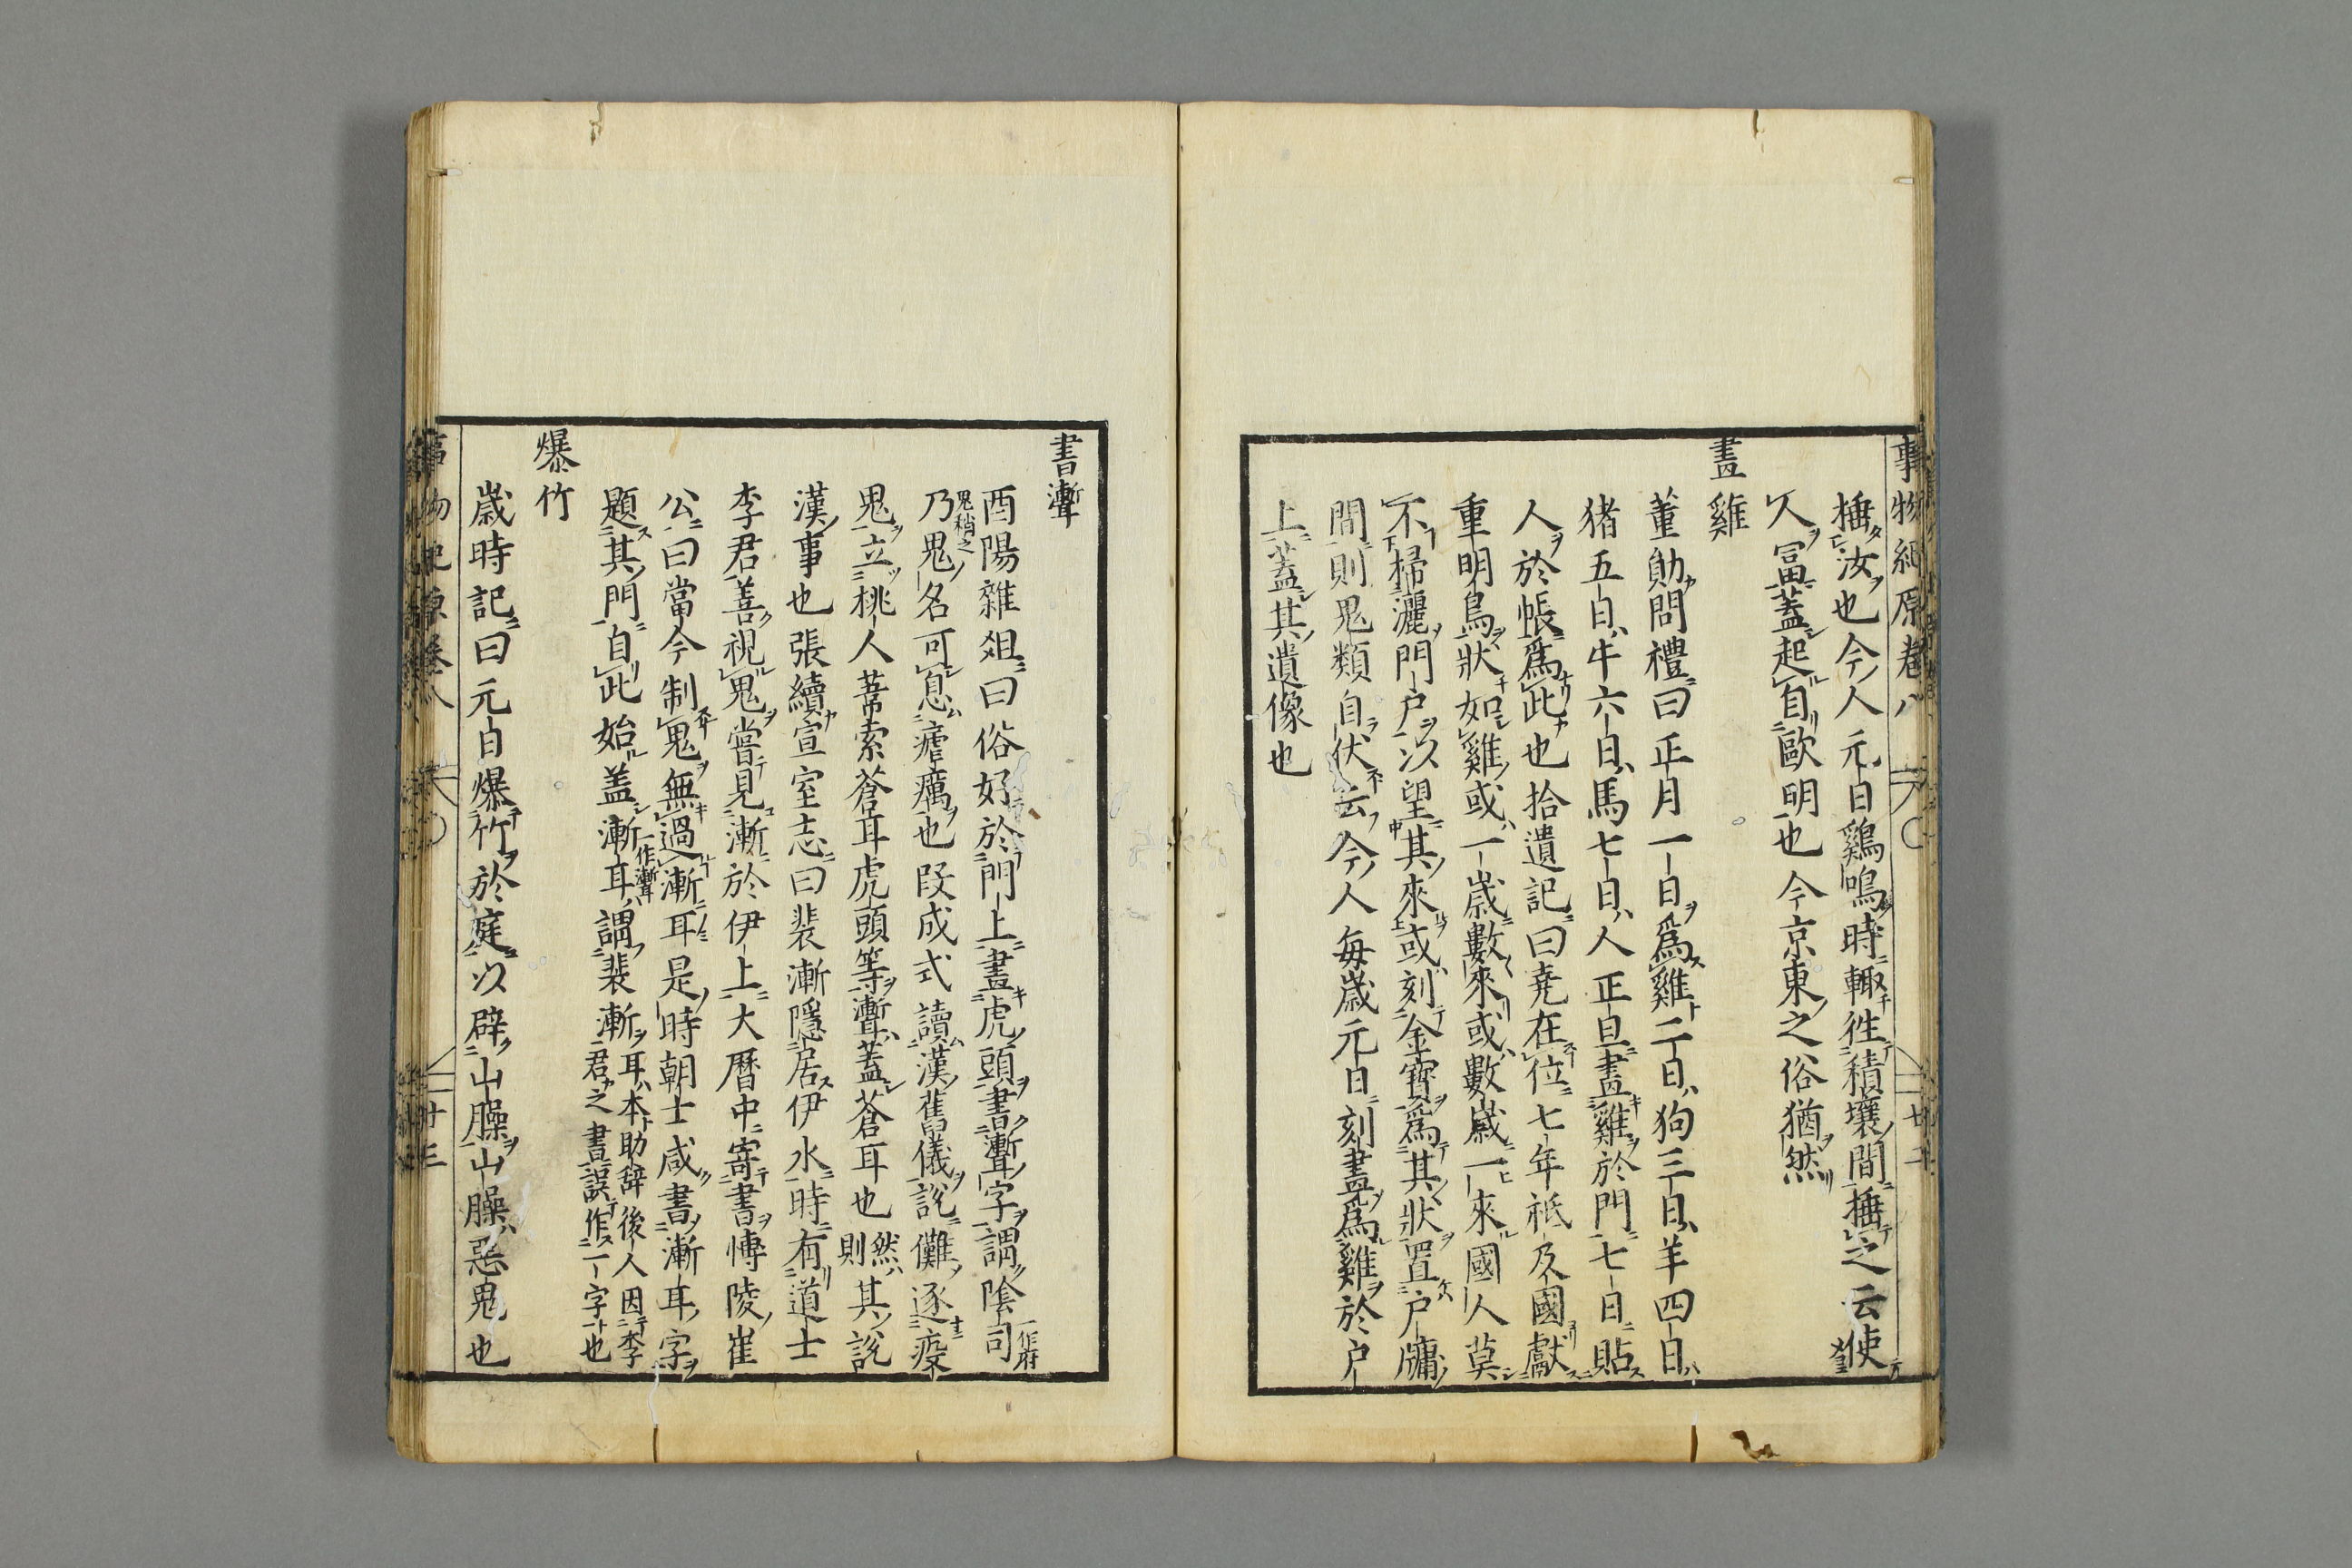 事物紀原卷八
捶汝也今人元日鷄鳴時輙徃積壤間捶之云使
人冨蓋起自歐明也今京東之俗猶然
畫雞
董勛問禮曰正月一日爲雞二日狗三日羊四日
猪五日牛六日馬七日人正旦畫雞於門七日貼
人於帳爲此也拾遺記曰堯在位七年祇及國獻
重明鳥狀如雞或一歲數來或數歲一來國人莫
不掃灑門户以望其來或刻金寶爲其狀置户牖
間則鬼類自伏云今人每歲元日刻畫爲雞於户
上蓋其遺像也
書聻
酉陽雜俎曰俗好於門上畫虎頭書聻字謂陰司一作府
鬼稍之
乃鬼名可息瘧癘也段成式讀漢舊儀說儺逐疫
鬼立桃人葦索蒼耳虎頭等聻蓋蒼耳也然則其說
漢事也張續宣室志曰裴漸隱居伊水時有道士
李君善視鬼嘗見漸於伊上大曆中寄書博陵崔
公曰當今制鬼無過漸耳是時朝士咸書漸耳字
題其門自此始蓋漸耳一作聻謂裴漸耳本助辭後人因李君之書誤作一字也
爆竹
歲時記曰元日爆竹於庭以辟山臊山臊惡鬼也
事物紀原卷八
廿三